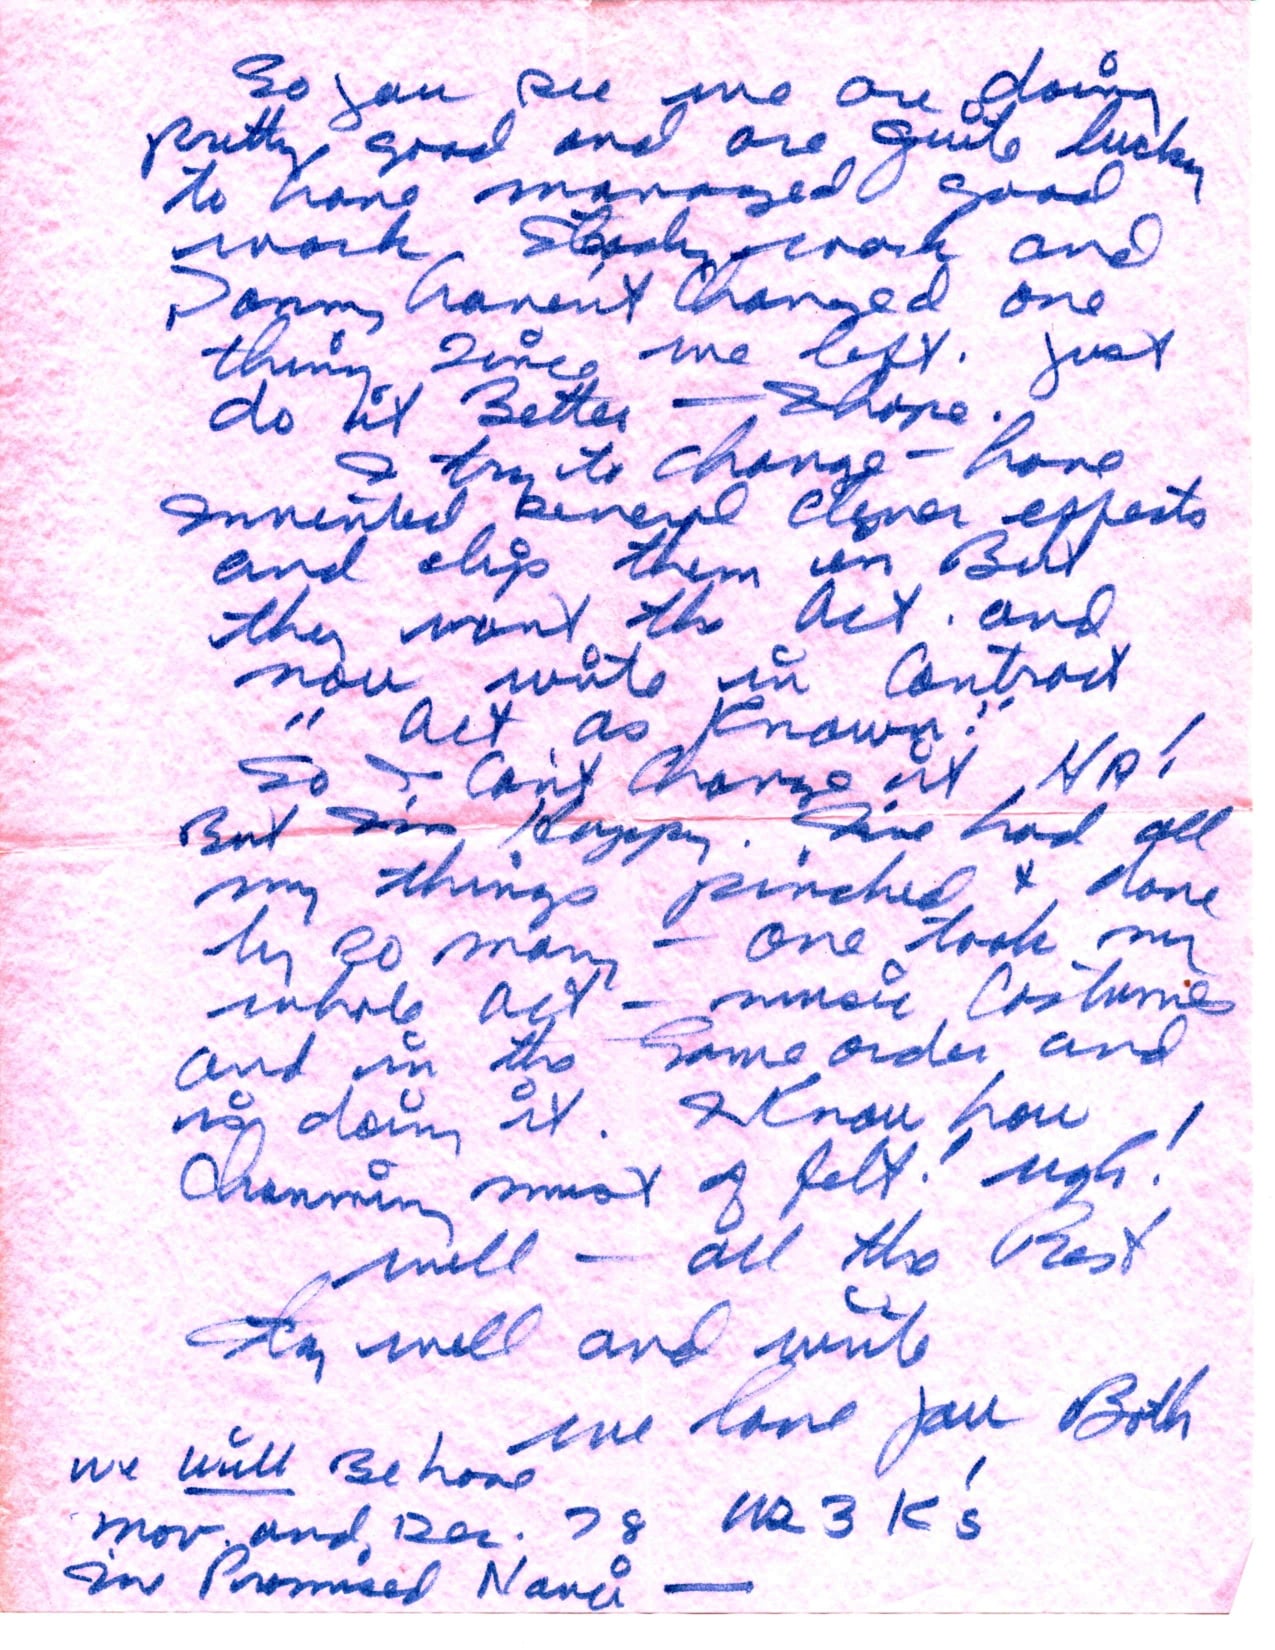 So you see we are doing
pretty good and are quite lucky
to have managed good
work. Steady work and
haven't changed one
thing since we left. Just
do it Better — I hope.
I try to change — have
Invented several clever effects
and slip them in But
they want the Act. and
now write in Contract
" Act as Known."
So I Can't Change it HA!
But I'm Happy. I've had all
my things pinched & done
by so many — one took my
whole Act — music Costumes
and in the Same order and
is doing it. I Know how
Channing must of felt! ugh!
well — all the Best
Stay well and write
we love you Both
we will Be home
Nov. and Dec. 78 US 3 K's
I've Promised Nani —